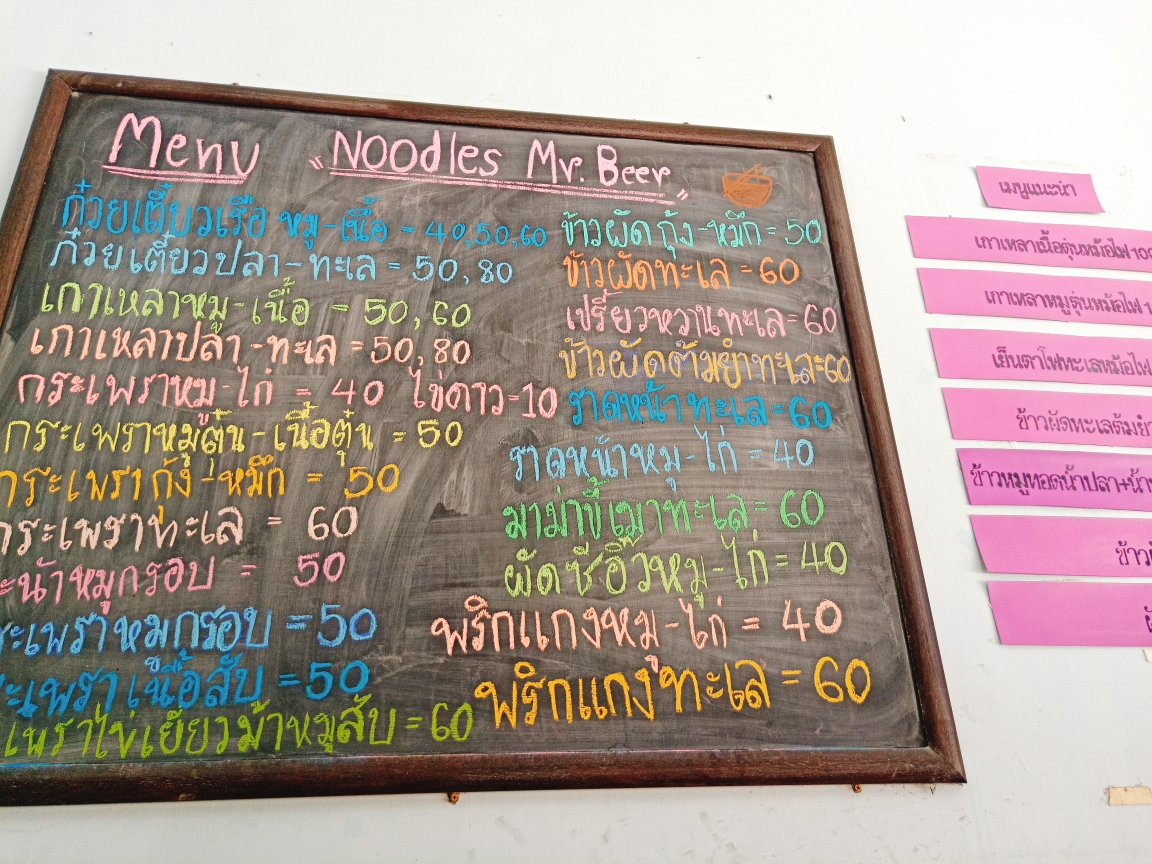 Menu "Noodles Mr. Beer"
ก๋วยเตี๋ยวเรือ หมู-เนื้อ = 40,50,60
ก๋วยเตี๋ยวปลา-ทะเล = 50,80
เกาเหลาหมู-เนื้อ = 50,60
เกาเหลาปลา-ทะเล = 50,80
กระเพราหมู-ไก่ = 40 ไข่ดาว=10
กระเพราหมูตุ๋น-เนื้อตุ๋น = 50
กระเพรากุ้ง-หมึก = 50
กระเพราทะเล = 60
ะน้าหมูกรอบ = 50
ระเพราหมูกรอบ =50
ะเพราเนื้อสับ =50
เพราไข่เยี่ยวม้าหมูสับ =60
ข้าวผัดกุ้ง-หมึก=50
ข้าวผัดทะเล =60
เปรี้ยวหวานทะเล=60
ข้าวผัดต้มยำทะเล=60
ราดหน้าทะเล=60
ราดหน้าหมู-ไก่ =40
มาม่าขี้เมาทะเล=60
ผัดซีอิ๊วหมู-ไก่=40
พริกแกงหมู-ไก่ = 40
พริกแกงทะเล = 60
เมนูแนะนำ
เกาเหลาเนื้อตุ๋นหม้อไฟ 10
เกาเหลาหมูตุ๋นหม้อไฟ 1
เย็นตาโฟทะเลหม้อไฟ
ข้าวผัดทะเลต้มยำ
ข้าวหมูทอดน้ำปลา+น้ำ